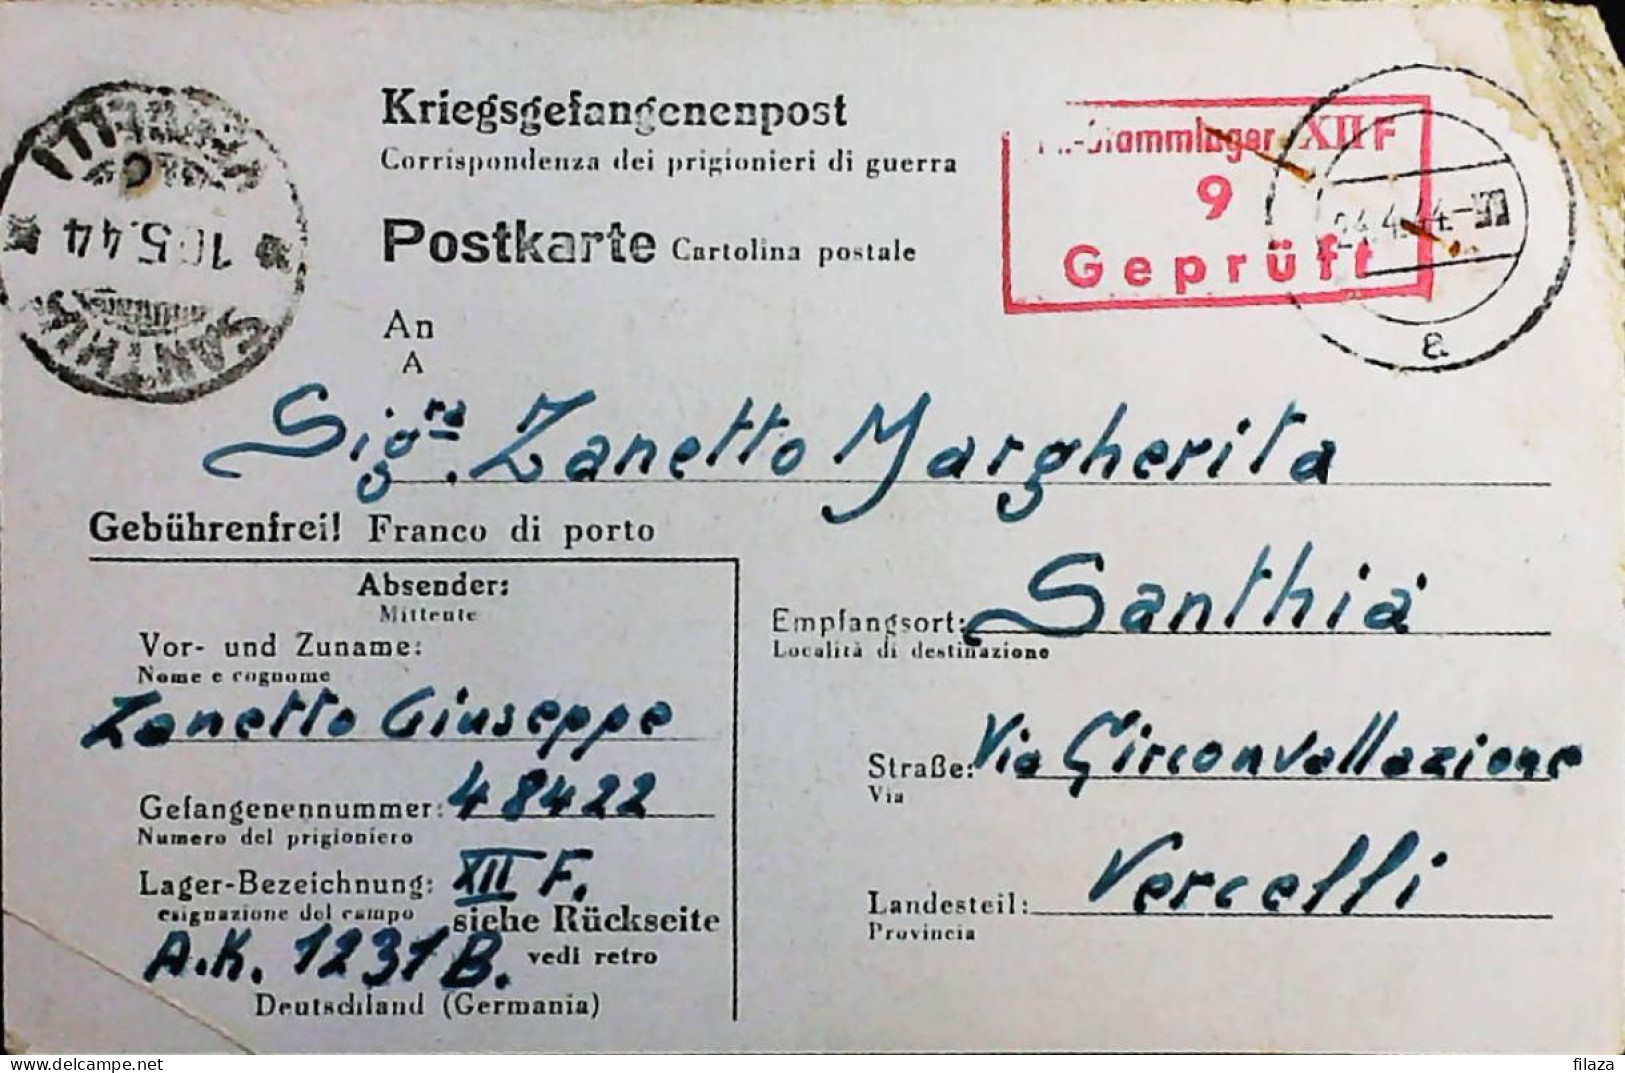 Kriegsgefangenenpost
Corrispondenza dei prigionieri di guerra
Postkarte Cartolina postale
-Stammlager XII F
9
Geprüft
24.4.44
a
SANTHIÀ
10.5.44
An
A
Sig.ra Zanetto Margherita
Gebührenfrei! Franco di porto
Absender:
Mittente
Vor- und Zuname:
Nome e cognome
Zanetto Giuseppe
Gefangenennummer: 48422
Numero del prigioniero
Lager-Bezeichnung: XII F.
esignazione del campo
siehe Rückseite
A.K. 1231 B. vedi retro
Deutschland (Germania)
Empfangsort: Santhià
Località di destinazione
Straße: Via Circonvallazione
Via
Landesteil: Vercelli
Provincia
filaza